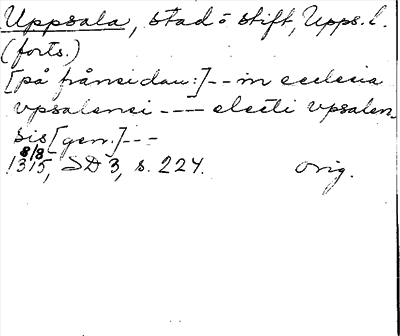 Uppsala, stad o stift, Upps. l.
(forts.)
[på frånsidan:] -- in ecclesia
vpsalensi --- electi vpsalen-
sis [gen.] ---
8/8
1315, SD 3, s. 224. orig.